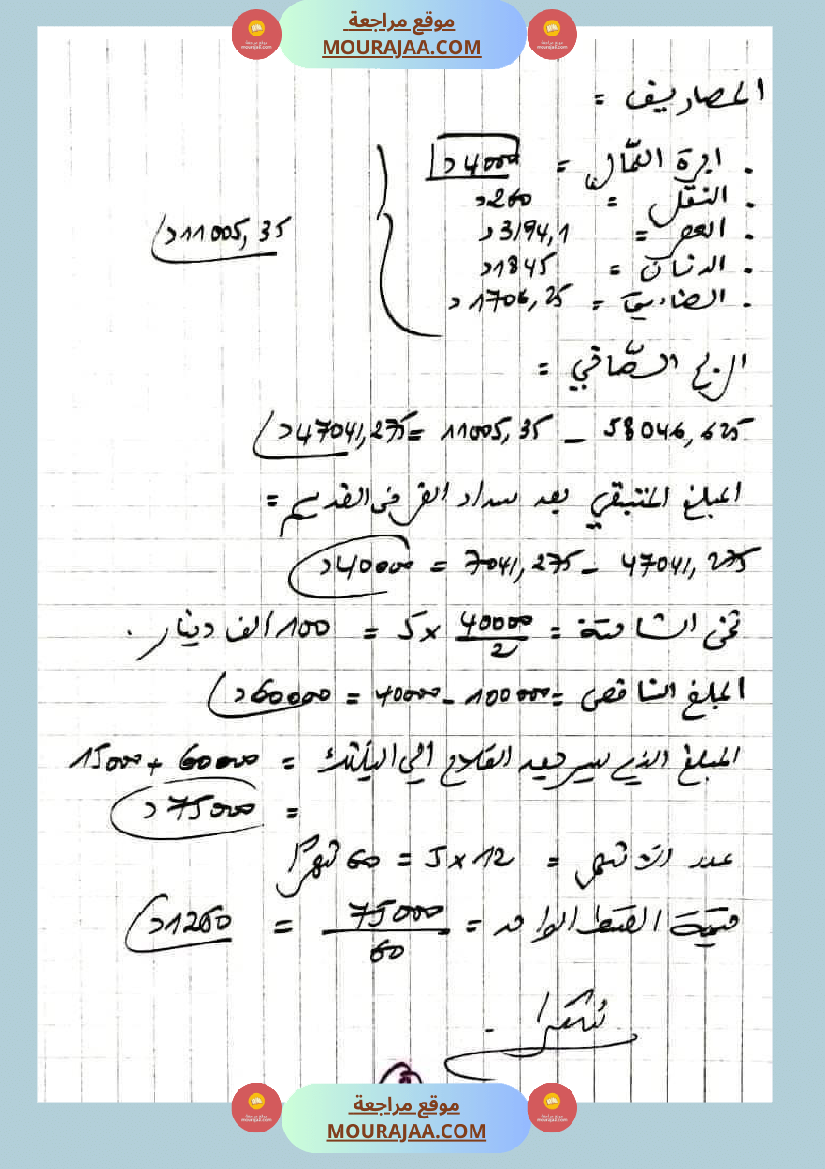 موقع مراجعة
MOURAJAA.COM
المصاريف =
. اجرة العمّال = 4000د
. النقل = 260د
. العصر = 3194,1د
. الدنان = 1845د
. = 1706,25د
11005,35د
الربح الصّافي =
58046,625 - 11005,35 = 47041,275د
المبلغ المتبقي بعد سداد القرض القديم =
47041,275 - 7041,275 = 40000د
ثمن الشاحنة = 40000/2 × 5 = 100 الف دينار.
المبلغ الناقص = 100000 - 40000 = 60000د
المبلغ الذي سيرجعه الفلاح الى البنك = 60000 + 15000
= 75000د
عدد الاشهر = 12 × 5 = 60 شهرًا
قيمة القسط الواحد = 75000/60 = 1250د
شكرا .
موقع مراجعة
MOURAJAA.COM